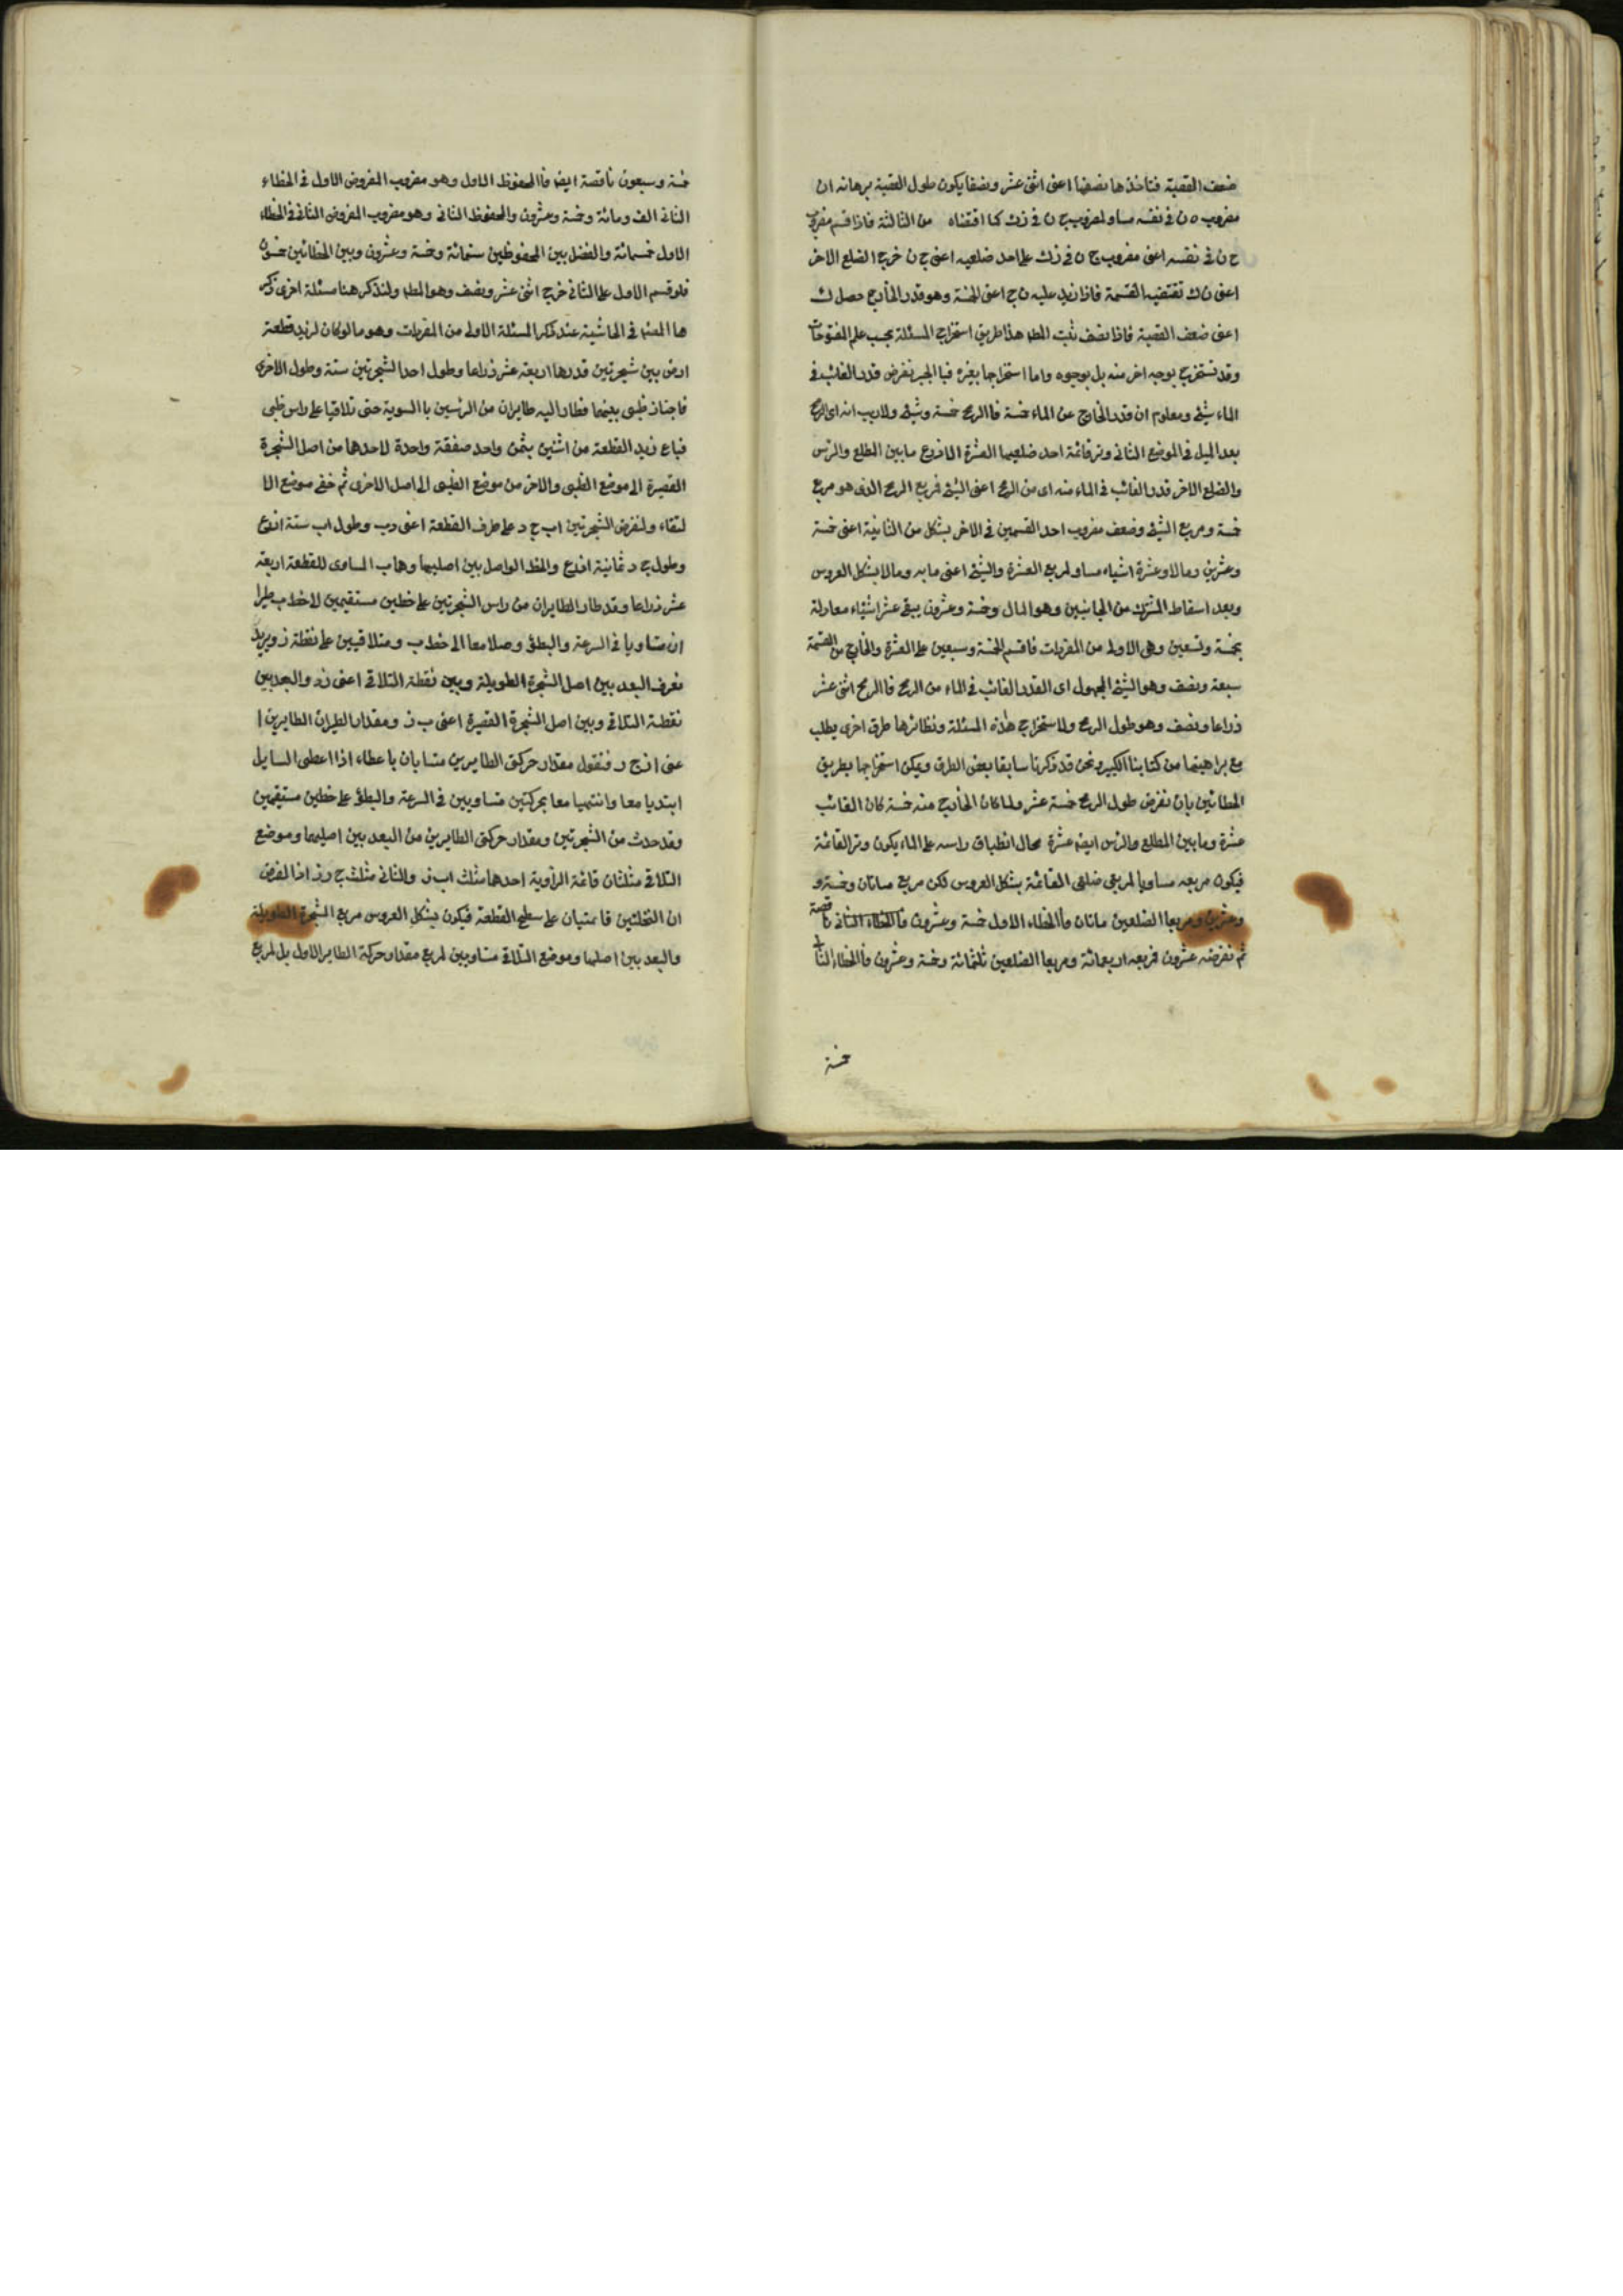 ضعف القصبة فتأخذها نصفها اعنى اثنى عشر ونصفا يكون طول القصبة برهانه ان
مضروب ه ن فى نفسه مساو لمضروب ج ن فى ن ك كما من الثالثة فاذا قسم مضروب
ح ن فى نفسه اعنى مضروب ج ن فى ن ك على احد ضلعيه اعنى ج ن خرج الضلع الاخر
اعنى ن ك تقتضيه القسمة فاذا زيد عليه ن ج اعنى الخمسة وهو قدر الخارج حصل ك
اعنى ضعف القصبة فاذا نصف ثبت المط هذا طريق استخراج المسئلة بحسب علم المفتوحات
وقد تستخرج بوجه اخر منه بل بوجوه واما استخراجها بغيره فبا الجبر نفرض قدر الغائب فى
الماء شئ ومعلوم ان قدر الخارج عن الماء خمسة فا الرمح خمسة وشئ ولا ريب انه اى الرمح
بعد الميل فى الموضع الثانى وتر قائمة احد ضلعيها العشرة الاذرع ما بين المطلع والرس
والضلع الاخر قدر الغائب فى الماء منه اى من الرمح اعنى الشئ فربع الرمح الذى هو مربع
خمسة ومربع الشئ وضعف مضروب احد القسمين فى الاخر بشكل من الثانية اعنى خمسة
وعشرين ومالا وعشرة اشياء مساو لمربع العشرة والشئ اعنى مايه ومالا بشكل العروس
وبعد اسقاط المشترك من الجانبين وهو المال وخمسة وعشرون يبقى عشر اشياء معادلة
بخمسة وتسعين وهى الاولى من المفردات فاقسم الخمسة وسبعين على العشرة والخارج من القسمة
سبعة ونصف وهو الشئ المجهول اى القدر الغائب فى الماء من الرمح فا الرمح اثنى عشر
ذراعا ونصف وهو طول الرمح ولاستخراج هذه المسئلة ونظائرها طرق اخرى يطلب
مع براهينها من كتابنا الكبير ونحن قد ذكرنا سابقا بعض الطرق ويمكن استخراجها بطريق
الخطائين بان نفرض طول الرمح خمسة عشر ولما كان الخارج منه خمسة كان الغائب
عشرة وما بين المطلع والرس ايضه عشرة بحال انطباق راسه على الماء يكون وتر القائمة
فيكون مربعه مساويا لمربعى ضلعى القائمة بشكل العروس لكن مربع مساتان وخمسة و
وعشرين ومربعا الضلعين ماتان فا الخطاء الاول خمسة وعشرون فا الخطاء الثانى ناقصة
ثم نفرضه عشرون فربعه اربعمائة ومربعا الضلعين ثلثمائة وخمسة وعشرون فا الخطاء الثانى
خمسة
خمسة وسبعون ناقصة ايضا فا المحفوظ الاول وهو مضروب المفروض الاول فى الخطاء
الثانى الف ومائة وخمسة وعشرون والمحفوظ الثانى وهو مضروب المفروض الثانى فى الخطاء
الاول خمسمائة والفضل بين المحفوظين ستمائة وخمسة وعشرون وبين الخطائين خمسون
فلو قسم الاول على الثانى خرج اثنى عشر ونصف وهو المط ولنذكر هنا مسئلة اخرى ذكر
ها المص فى الحاشية عند ذكر المسئلة الاولى من المفردات وهو ما لو كان لزيد قطعة
ارض بين شجرتين قدرها اربعة عشر ذراعا وطول احد الشجرتين ستة وطول الاخرى
فاجتاز ظبى بينهما فطار اليه طايران من الرئسين با السوية حتى تلاقيا على راس ظبى
فباع زيد القطعة من اثنين بثمن واحد صفقة واحدة لاحدها من اصل الشجرة
القصيرة الى موضع الظبى والاخر من موضع الظبى الى اصل الاخرى ثم خفى موضع الا
لتقاء ولنفرض الشجرتين اب ج د على طرف القطعة اعنى دب وطول اب ستة اذرع
وطول ج د ثمانية اذرع والخط الواصل بين اصليهما وهاب المساوى للقطعة اربعة
عشر ذراعا وقد طار الطايران من راس الشجرتين على خطين مستقيمين لاخط ب طيرا
ان متساويا فى السرعة والبطؤ وصلا معا الى خط ب ومتلاقيين على نقطة ز ويريد
نعرف البعد بين اصل الشجرة الطويلة وبين نقطة التلاقى اعنى زد والبعد بين
نقطة التلاقى وبين اصل الشجرة القصيرة اعنى ب ز ومقدار الطيران الطايرين ا
عنى از ج ز فنقول مقدار حركتى الطايرين متسايان باعطاء اذا اعطى السايل
ابتديا معا وانتهيا معا بحركتين متساويين فى السرعة والبطؤ على خطين مستقيمين
وقد حدث من الشجرتين ومقدار حركتى الطايرين من البعد بين اصليهما وموضع
التلاقى مثلثان قائمة الزاوية احدها مثلث اب ز والثانى مثلث ج د ز اذا لفرض
ان النخلتين قائمتيان على سطح القطعة فيكون بشكل العروس مربع الشجرة الطويلة
والبعد بين اصلها وموضع التلاقى متساويين لمربع مقدار حركة الطاير الاول بل لمربع